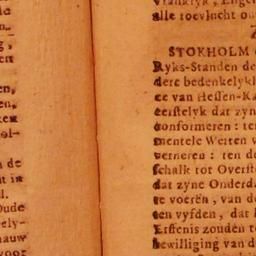 n.
g,
en
en,
en,
ken
ol-
n de
it in
l.
Oude
ely-
nauw
voor
Vrankryk, Engel
alle toevlucht ou
STOKHOLM
Ryks-Standen de
dere bedenkelykh
ce van Hessen-Ka
eerstelyk dat zyn
conformeren: ten
mentele Wetten v
verneren: ten de
schalk tot Overste
dat zyne Onderda
te voeren, van de
ten vyfden, dat h
Erffenis zouden t
bewilliging van d